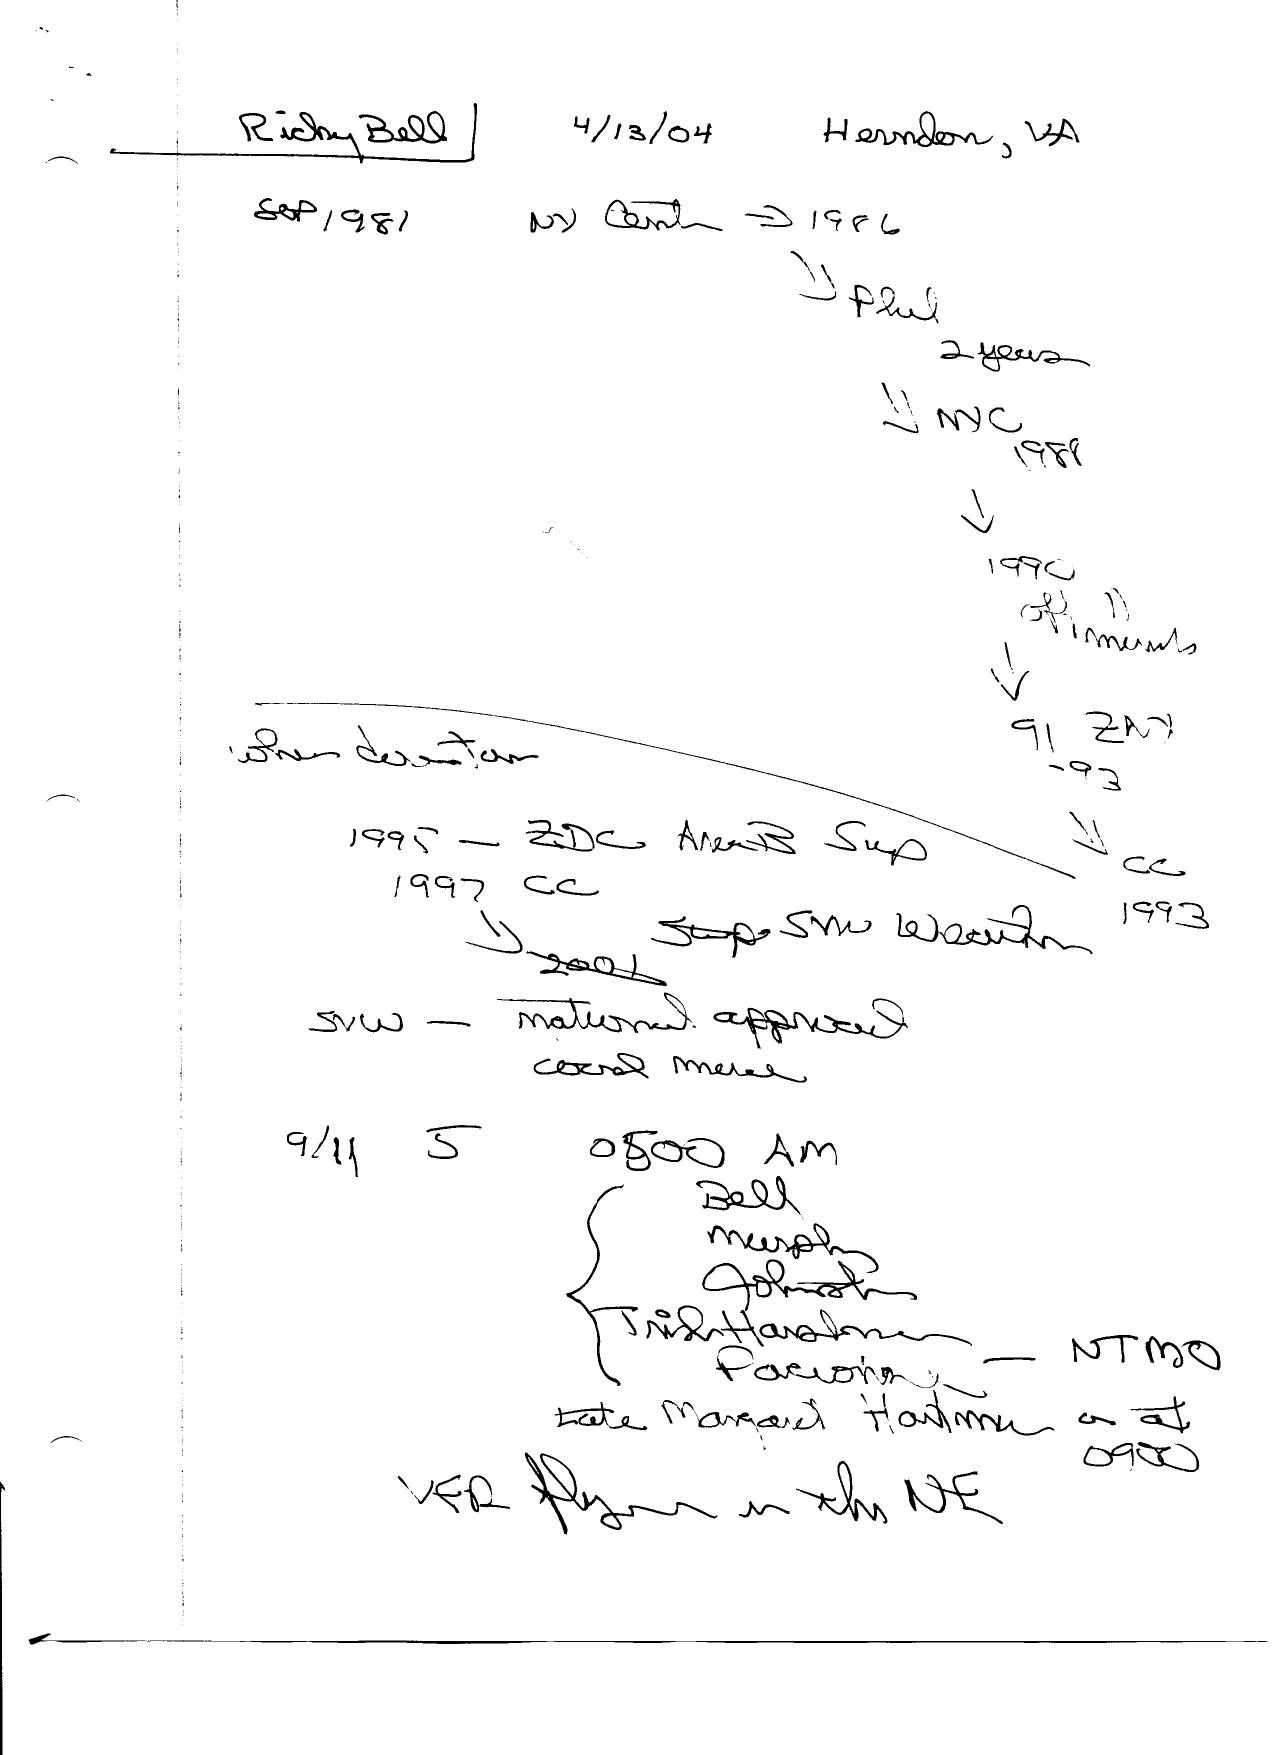 Ricky Bell 4/13/04 Herndon, VA
SEP 1981 NY Cent ⇒ 1986
Phil
2 years
NYC
1988
↓
1990
↓
91 ZNY
-93
CC
1993
when
1995 - ZDC Area B Sup
1997 CC
2001
Sup SVW Weather
SVW - national approval
9/11 5 0500 AM
Bell
Murphy
Johnston
Trish
- NTMO
Late Margaret Hartman on at
0900
VFR flying in the NE